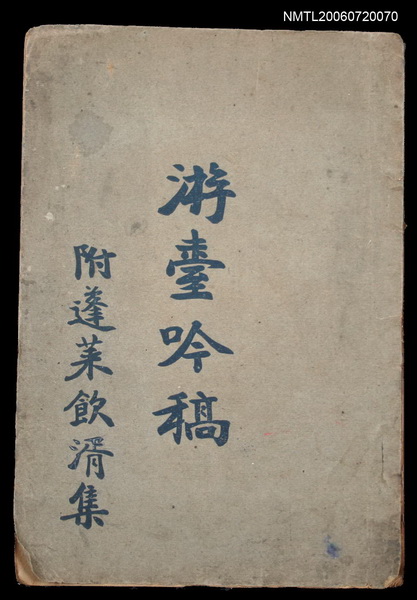 NMTL20060720070
游臺吟稿
附蓬萊飲湑集